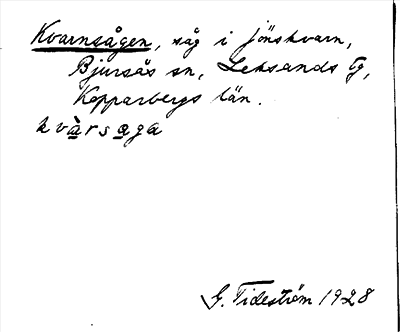 Kvarnsågen, såg i Jönskvarn,
Bjursås sn, Leksands tg,
Kopparbergs län.
kvàrsaga
G. Tideström 1928